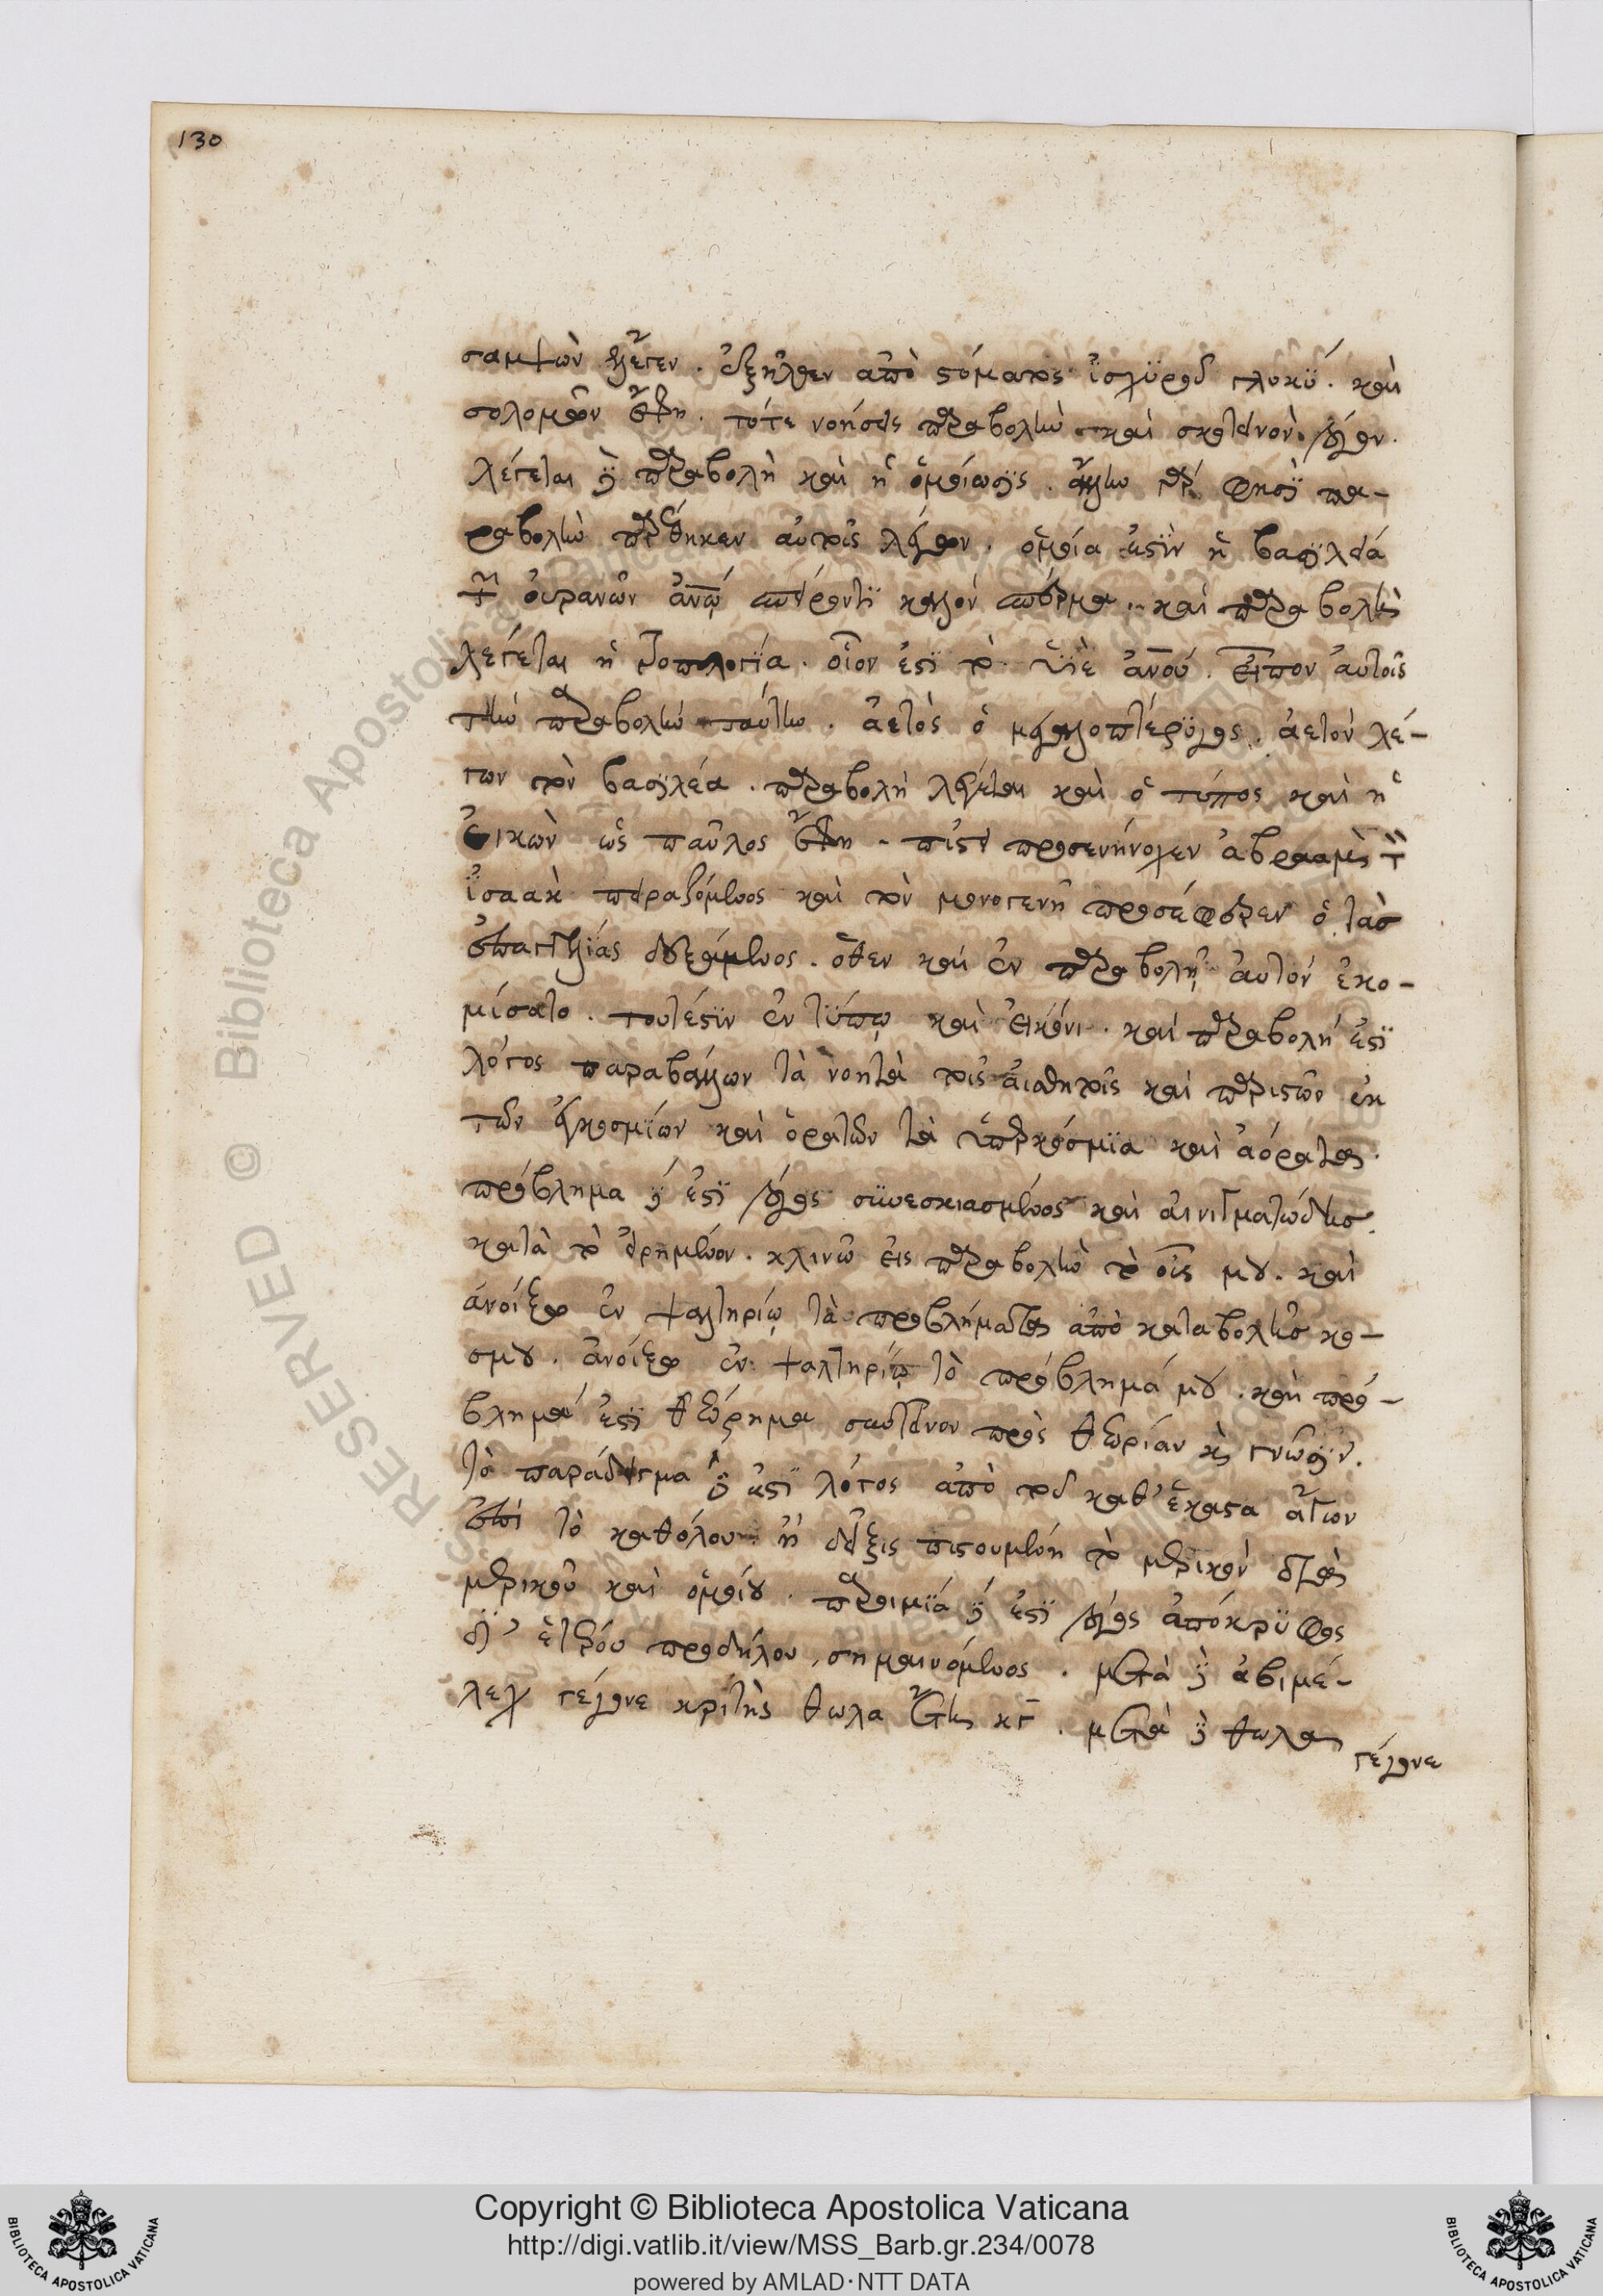 130
σαμψὼν ἔλεγεν. ἐξῆλθεν ἀπὸ στόματος ἰσχϋροῦ γλυκΰ. καὶ
σολομῶν ἔφη. τότε νοήσεις παραβολὴν καὶ σκοτεινὸν λόγον.
λέγεται δὲ παραβολὴ καὶ ἡ ὁμοίωσϊς. ἄλλην γὰρ φησϊ πα-
ραβολὴν παρέθηκεν αὐτοῖς λέγων. ὁμοία ἐστὶν ἡ βασϊλεία
τῶν οὐρανῶν ἀνω̅ σπείροντϊ καλὸν σπέρμα. καὶ παραβολὴ
λέγεται ἡ τροπολογΐα. οἷον ἐστϊ τὸ. ὑϊὲ ἀνου̅. εἰπὸν αὐτοῖς
τὴν παραβολὴν ταύτην. ἀετὸς ὁ μεγαλοπτέρϋγος. ἀετὸν λέ-
γων τὸν βασϊλέα. παραβολὴ λέγεται καὶ ὁ τύπος καὶ ἡ
εἰκὼν ὡς παῦλος ἔφη. πίστει προσενήνοχεν ἀβραὰμ τὸν
ἰσαὰκ πειραζόμενος καὶ τὸν μονογενῆ προσέφερεν ὁ τὰσ
ἐπαγγελίας δεξάμενος. ὅθεν καὶ ἐν παραβολῇ αὐτὸν ἐκο-
μίσατο. τουτέστϊν ἐν τΰπῳ καὶ εἰκόνι. καὶ παραβολή ἐστϊ
λόγος παραβάλλων τὰ νοητὰ τοῖς αἰσθητοῖς καὶ παριστῶν ἐκ
τῶν ἐγκοσμΐων καὶ ὁρατῶν τὰ ὑπερκόσμϊα καὶ ἀόρατα.
πρόβλημα δέ ἐστϊ λόγος σϋνεσκιασμένος καὶ αἰνιγματώδησ
κατὰ τὸ εἰρημένον. κλινῶ εἰς παραβολὴν τὸ οὖς μου. καὶ
ἀνοίξω ἐν ψαλτηρίῳ τὰ προβλήματα ἀπὸ καταβολῆσ κο-
σμου. ἀνοίξω ἐν ψαλτηρίῳ τὸ πρόβλημά μου. καὶ πρό-
βλημά ἐστϊ θεώρημα συντεῖνον πρὸς θεωρίαν καὶ γνῶσϊν.
τὸ παράδειγμα δέ ἐστϊ λόγος ἀπὸ τοῦ καθ' ἕκαστα ἄγων
ἐπὶ τὸ καθόλου. ἢ δεῖξις πιστουμένη τὸ μερικὸν διὰ
μερικοῦ καὶ ὁμοίου. παροιμΐα δέ ἐστϊ λόγος ἀπόκρϋφος
δι' ἑτέρου προδήλου σημαινόμενος. μετὰ δὲ ἀβιμέ-
λεχ γέγονε κριτὴς θωλα ἔτη κγ. μετὰ δὲ θωλα
γέγονε
Copyright © Biblioteca Apostolica Vaticana
http://digi.vatlib.it/view/MSS_Barb.gr.234/0078
powered by AMLAD·NTT DATA